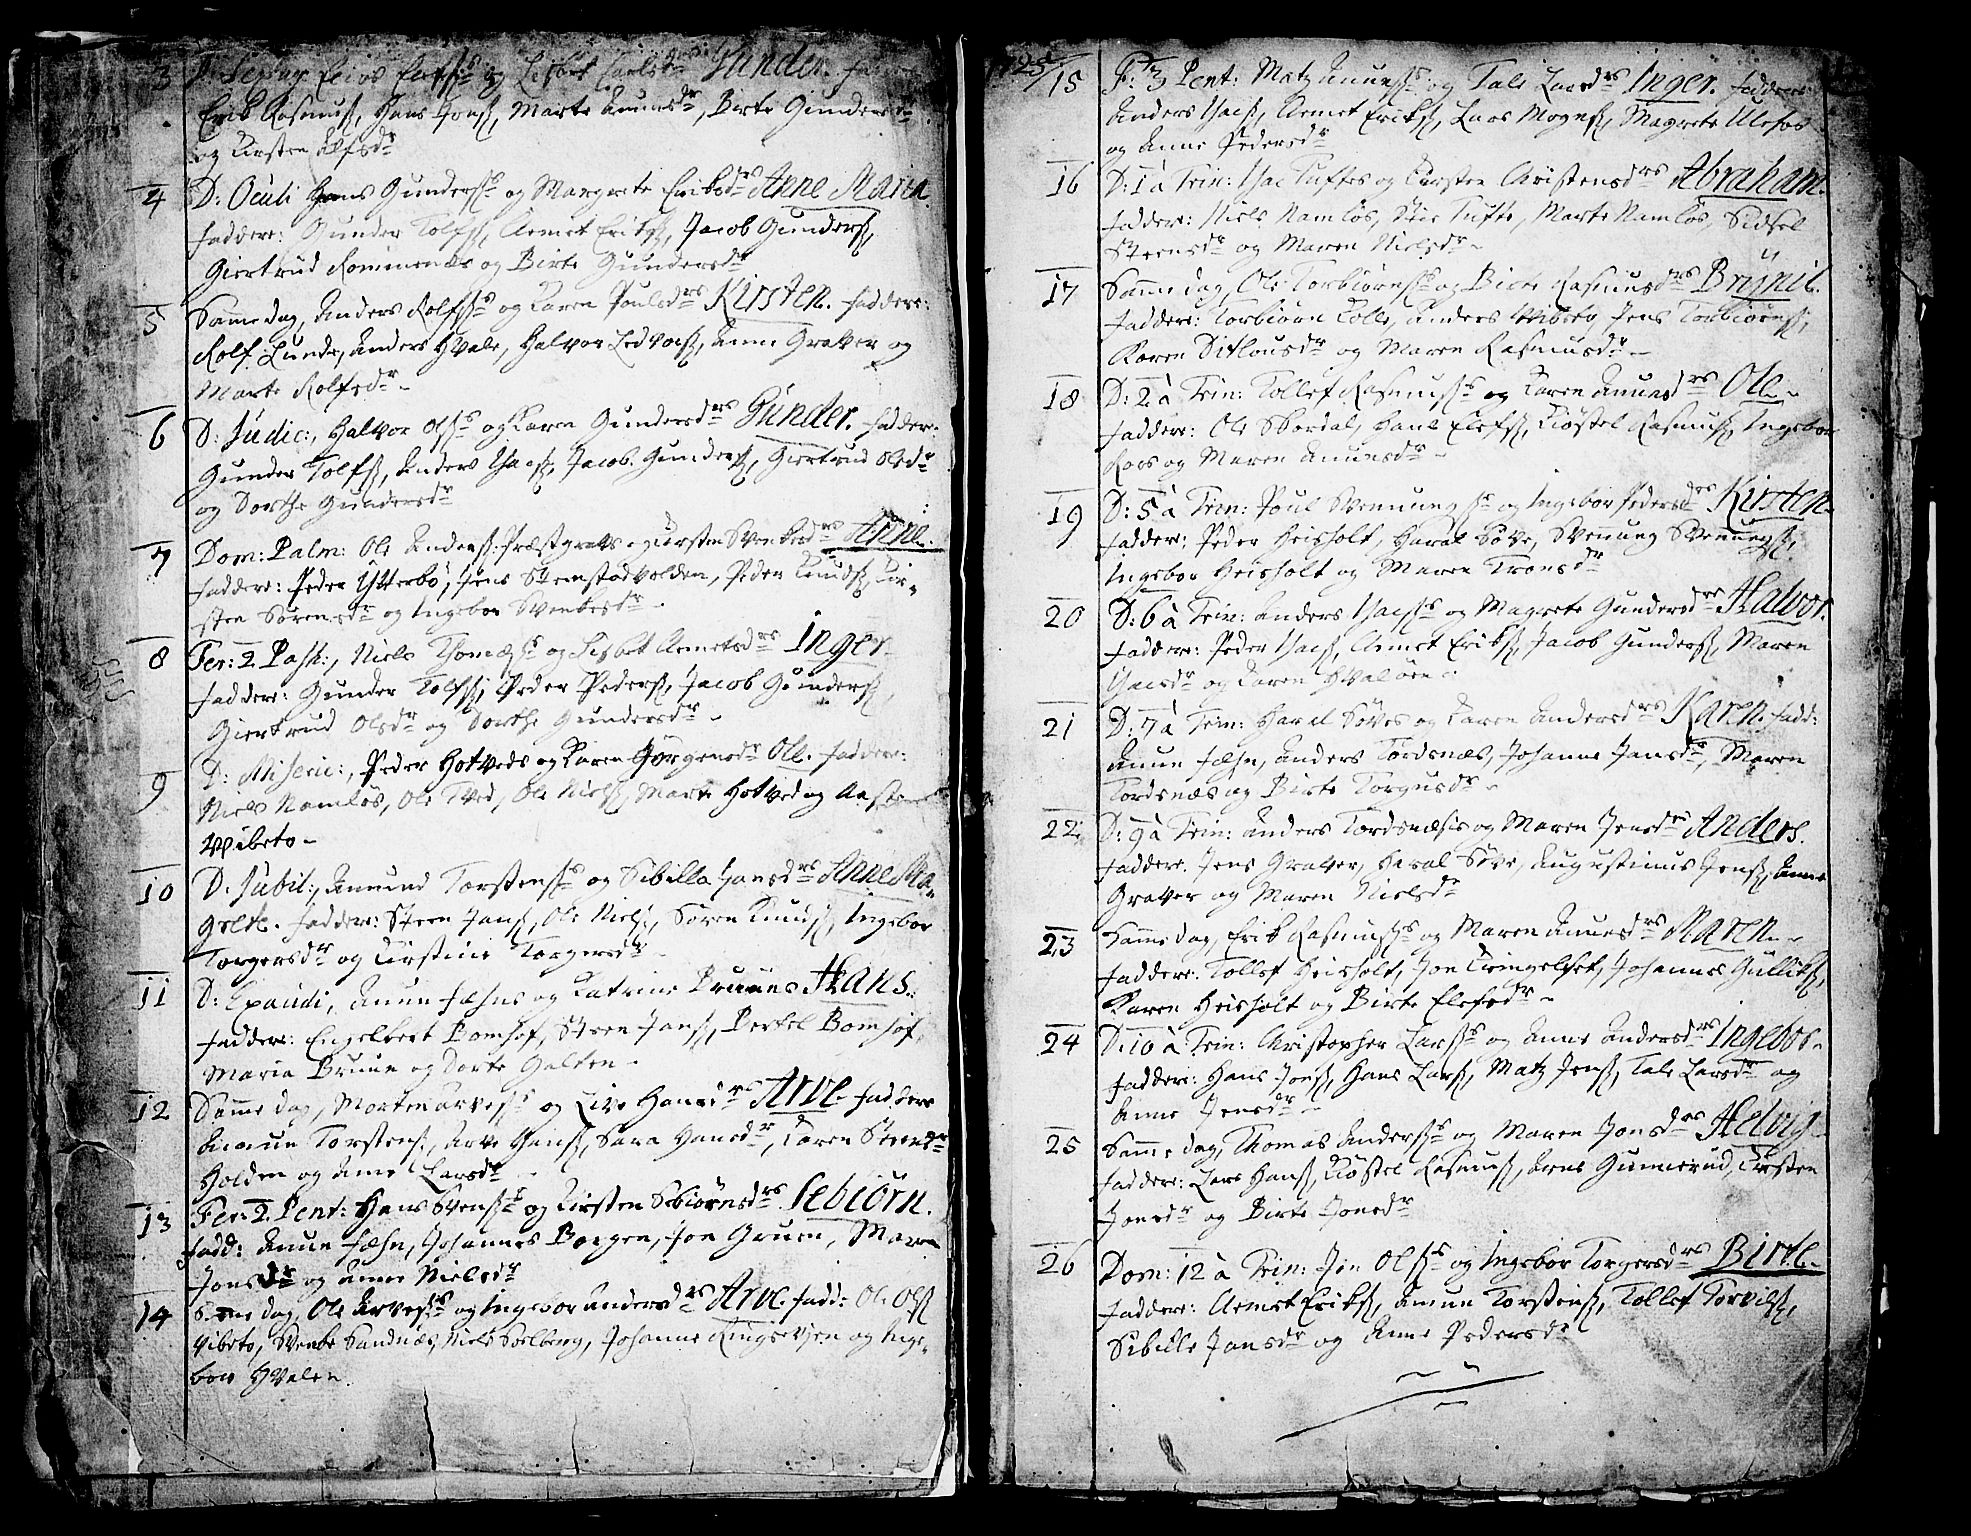 3 D: Septuag: Elefs: og Lisbet Carlsdrs Gunder. fadd:
Erik Rasmus:, Hans Jens:, Marte Amunsdr, Birte Gundersdr
og Kirsten Elfsdr
4 D: Oculi Hans Gunders:s og Margrete Eriksdrs Anne Maria
faddere: Gunder Tolfs:, Clemet Eriks:, Jacob Gunders:,
Giertrud Rommenæs og Birte Gundersdr
5 Samme dag, Anders Rolfs:s og Karen Poulsdrs Kirsten. faddere:
Rolf Lunde, Anders Hvale, Halvor Ledvors:, Anne Graver og
Marte Rolfsdr -
6 D: Judic:, Halvor Ols:s og Karen Gundersdrs Gunder. fadder:
Gunder Tolfs:, Anders Isacs:, Jacob Gunders:, Giertrud Olsdr
og Dorthe Gundersdr
7 Dom: Palm: Ole Anders: Præstgravs og Kirsten Svenkesdrs Anne.
faddere: Peder Ytterbø, Jens Steenstadvolden, Peder Knuds:, Kir-
sten Sørensdr og Ingebor Svenkesdr -
8 Fer: 2. Pasch:, Niels Thomæs:s og Lisbet Clemetsdrs Inger
faddere: Gunder Tolfs:, Peder Peders:, Jacob Gunders:
Giertrud Olsdr og Dorthe Gundersdr -
9 D: Miseric:, Peder Hotveds og Karen Jørgensdr Ole. faddere:
Niels Namløs, Ole Tved, Ole Niels:, Marte Hotved og Aasten
Vibeto -
10 D: Jubil:, Amund Torstens:s og Sibilla Jansdrs Anne Ma-
grete. fadder: Steen Jans:, Ole Niels:, Søren Knuds:, Ingebor
Torgersdr og Kirstine Torgersdr -
11 D: Exaudi, Amun Fæhns og Katrine Bruuns Hans.
faddere: Engelbret Bomhof, Steen Jans:, Bertel Bomhof,
Maria Bruun og Dorte Galten -
12 Samme dag, Morten Arves:s og Live Hansdrs Arve. faddere
Amun Torstens:, Arve Hans:, Sara Hansdr, Karen Steensdr
Holden og Anne Larsdr -
13 Fer: 2. Pent: Hans Svens:s og Kirsten Sebiørnsdrs Sebiörn.
Fadd: Amun Fæhn, Johannes Borgen, Jon Gruen, Maren
Jonsdr og Anne Nielsdr
14 Samme dag, Ole Arves:s og Ingebor Andersdrs Arve. Fadd: Ole Ols:
Vibeto, Svenke Sandnæs, Niels Solberg, Johanne Ringsevjen og Inge-
bor Hvalen.
15 F: 3 Pent: Matz Amuns:s og Tale Larsdrs Inger. faddere:
Anders Isacs:, Clemet Eriks:, Lars Mogns:, Magrete Ulefos
og Anne Pedersdr
16 D: 1 à Trin: Isac Tuftes og Kirsten Christensdrs Abraham.
fadder: Niels Namløs, Tufte, Marte Namløs, Sidsel
Steensdr og Maren Nielsdr -
17 Samme dag, Ole Torbiørns:s og Birte Rasmusdrs Brynil.
faddere: Torbiørn Kolle, Anders Wiberg, Jens Torbiørns:,
Karen Ditlousdr og Maren Rasmusdr -
18 D: 2 à Trin: Tollef Rasmus:s og Karen Amunsdrs Ole -
faddere: Ole Skordal, Hans Elefs:, Kiøstel Rasmus:, Ingebor
Roos og Maren Amunsdr -
19 D: 5 à Trin: Poul Svennungs:s og Ingebor Pedersdrs Kirsten.
fadder: Peder Heisholt, Haral Søve, Svenung Svenungs:,
Ingebor Heisholt og Maren Tronsdr
20 D: 6 à Trin: Anders Isacs:s og Magrete Gundersdrs Halvor.
faddere: Peder Isacs:, Clemet Eriks:, Jacob Gunders:, Maren
Isacsdr og Karen Hvaløen -
21 D: 7 à Trin: Haral Søves og Karen Andersdrs Karen. fadd:
Amun Fæhn, Anders Tordsnæs, Johanne Jansdr, Maren
Tordsnæs og Birte Torgusdr -
22 D: 9 à Trin: Anders Tordsnæsis og Maren Jensdrs Anders.
faddere. Jens Graver, Haral Søve, Augustinus Jens:, Anne
Graver og Maren Nielsdr
23 Samme dag, Erik Rasmus:s og Maren Amunsdrs Maren -
faddere: Tollef Heisholt, Jon Tringelset, Johannes Gulliks:,
Karen Heisholt og Birte Elefsdr -
24 D: 10 à Trin: Christopher Lars:s og Anne Andersdrs Ingebor -
faddere: Hans Jons:, Hans Lars:, Matz Jens:, Tale Larsdr og
Anne Jensdr -
25 Samme dag, Thomas Anders:s og Maren Jonsdrs Helvig
faddere: Lars Hans:, Kiøstel Rasmus:, Arens Gunnerud, Kirsten
Jonsdr og Birte Jonsdr
26 Dom: 12 à Trin: Jon Ols:s og Ingebor Torgersdrs Birte.
faddere: Clemet Eriks:, Amun Torstens:, Tollef Torvils:,
Sibille Jansdr og Anne Pedersdr